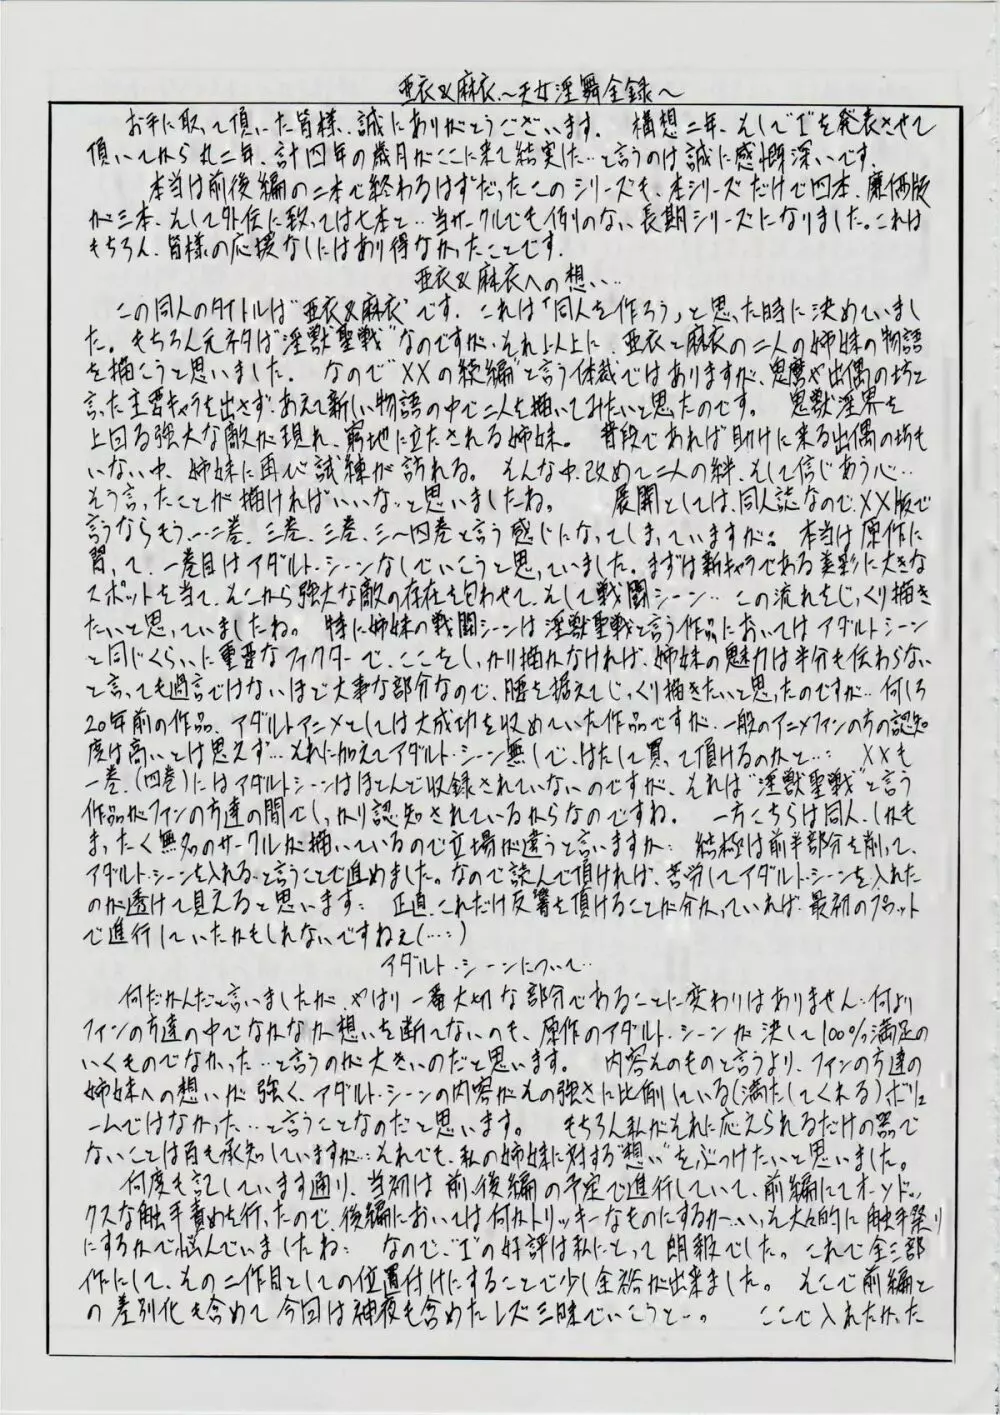 亜衣&麻衣〜天女淫舞全録〜
お手に取って頂いた皆様、誠にありがとうございます。 構想二年、そして"Ⅰ"を発表させて
頂いてから丸二年、計四年の歳月がここに来て結実した…と言うのは誠に感慨深いです。
本当は前後編の二本で終わるはずだったこのシリーズも、本シリーズだけで四本、廉価版
が三本、そして外伝に致っては七本と…当サークルでも例のない長期シリーズになりました。これは
もちろん、皆様の応援なしにはあり得なかったことです。
亜衣&麻衣への想い…
この同人のタイトルは"亜衣&麻衣"です。これは「同人を作ろう」と思った時に決めていまし
た。もちろん元ネタは"淫獣聖戦"なのですが、それ以上に、亜衣と麻衣の二人の姉妹の物語
を描こうと思いました。 なので"XXの続編"と言う体裁ではありますが、鬼麿や出偶の坊と
言った主要キャラを出さず、あえて新しい物語の中で二人を描いてみたいと思ったのです。 鬼獣淫界を
上回る強大な敵が現れ、窮地に立たされる姉妹。 普段であれば助けに来る出偶の坊も
いない中、姉妹に再び試練が訪れる。 そんな中、改めて二人の絆、そして信じあう心…
そう言ったことが描ければいいな…と思いましたね。 展開としては、同人誌なので、XX版で
言うならもう…二巻、三巻、三巻、三〜四巻と言う感じになってしまっていますが。 本当は原作に
習って、一巻目はアダルト・シーンなしでいこうと思っていました。まずは新キャラである美彩に大きな
スポットを当て、そこから強大な敵の存在を匂わせて、そして戦闘シーン…この流れをじっくり描き
たいと思っていましたね。 特に姉妹の戦闘シーンは淫獣聖戦と言う作品においてはアダルトシーン
と同じくらいに重要なファクターで、ここをしっかり描かなければ、姉妹の魅力は半分も伝わらない
と言っても過言ではないほど大事な部分なので、腰を据えてじっくり描きたいと思ったのですが…何しろ
20年前の作品、アダルトアニメとしては大成功を収めていた作品ですが、一般のアニメファンの方の認知
度は高いとは思えず…それに加えてアダルト・シーン無しで、はたして買って頂けるのかと…： XXも
一巻、(四巻)にはアダルトシーンはほとんど収録されていないのですが、それは"淫獣聖戦"と言う
作品がファンの方達の間でしっかり認知されているからなのですね。 一方こちらは同人、しかも
まったく無名のサークルが描いているので立場が違うと言いますか… 結極は前半部分を削って、
アダルト・シーンを入れる…と言うことで進めました。なので読んで頂ければ、苦労してアダルト・シーンを入れた
のが透けて見えると思います： 正直、これだけ反響を頂けることが分かっていれば、最初のプロット
で進行していたかもしれないですねぇ(…：)
アダルト・シーンについて…
何だかんだと言いましたが、やはり一番大切な部分であることに変わりはありません：何より
ファンの方達の中でなかなか想いを断てないのも、原作のアダルト・シーンが決して100%満足の
いくものでなかった…と言うのが大きいのだと思います。 内容そのものと言うより、ファンの方達の
姉妹への想いが強く、アダルト・シーンの内容がその強さに比例している(満たしてくれる)ボリュ
ームではなかった…と言うことなのだと思います。 もちろん私がそれに応えられるだけの器で
ないことは百も承知していますが…：それでも、私の姉妹に対する"想い"をぶつけたいと思いました。
何度も記しています通り、当初は前、後編の予定で進行していて、前編にてオーソドッ
クスな触手責めを行ったので、後編においては何かトリッキーなものにするか…いっそ大々的に触手祭り
にするかで悩んでいましたね： なので、"Ⅰ"の好評は私にとって朗報でした。これで全三部
作にして、その二作目としての位置付けにすることで少し余裕が出来ました。 そこで前編と
の差別化も含めて今回は神夜も含めたレズ三昧でいこうと…。 ここで入れたかった